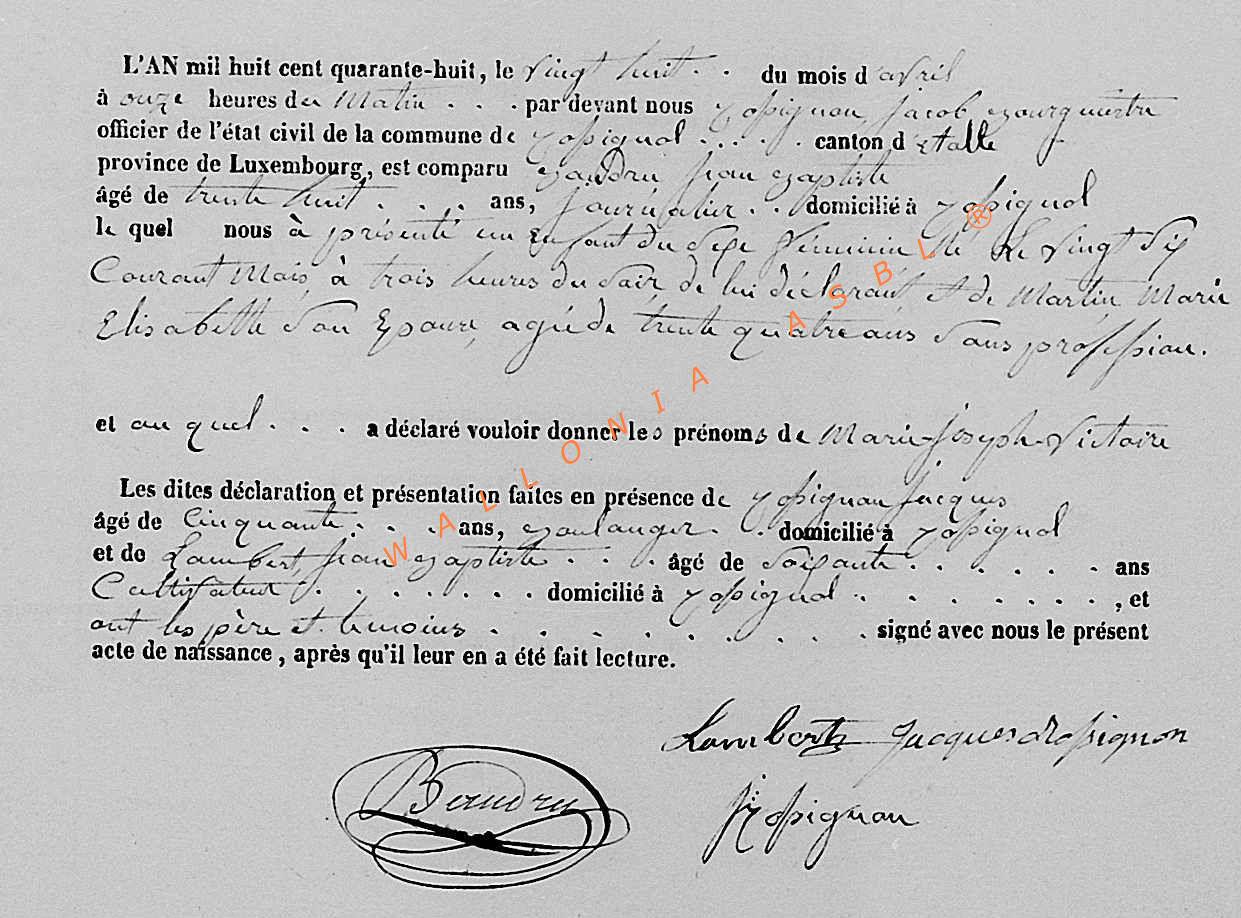 L'AN mil huit cent quarante-huit, le vingt huit . . du mois d'avril
à onze heures du Matin . . . par devant nous Rossignon Jacob Bourgmestre
officier de l'état civil de la commune de Rossignol . . . . . canton d'Etalle
province de Luxembourg, est comparu Baudru Jean Baptiste
âgé de trente huit . . . ans, Journalier . . domicilié à Rossignol
le quel nous à présenté un Enfant du Sexe Féminin Né Le vingt Six
Courant Mois, à trois heures du Soir, de lui déclarant et de Martin Marie
Elisabette Son Epouse, agée de trente quatre ans Sans profession.
et au quel . . . a déclaré vouloir donner les prénoms de Marie-Joseph-Victoire
Les dites déclaration et présentation faites en présence de Rossignon Jacques
âgé de Cinquante . . . ans, Boulanger . . domicilié à Rossignol
et de Lambert Jean Baptiste . . . âgé de Soixante . . . . . . ans
Cultivateur . . . . . . . domicilié à Rossignol . . . . . . . , et
ont les père et temoins . . . . . . . . signé avec nous le présent
acte de naissance, après qu'il leur en a été fait lecture.
Lambert Jacques Rossignon
Beaudru
J Rossignon
WALLONIA ASBL ®